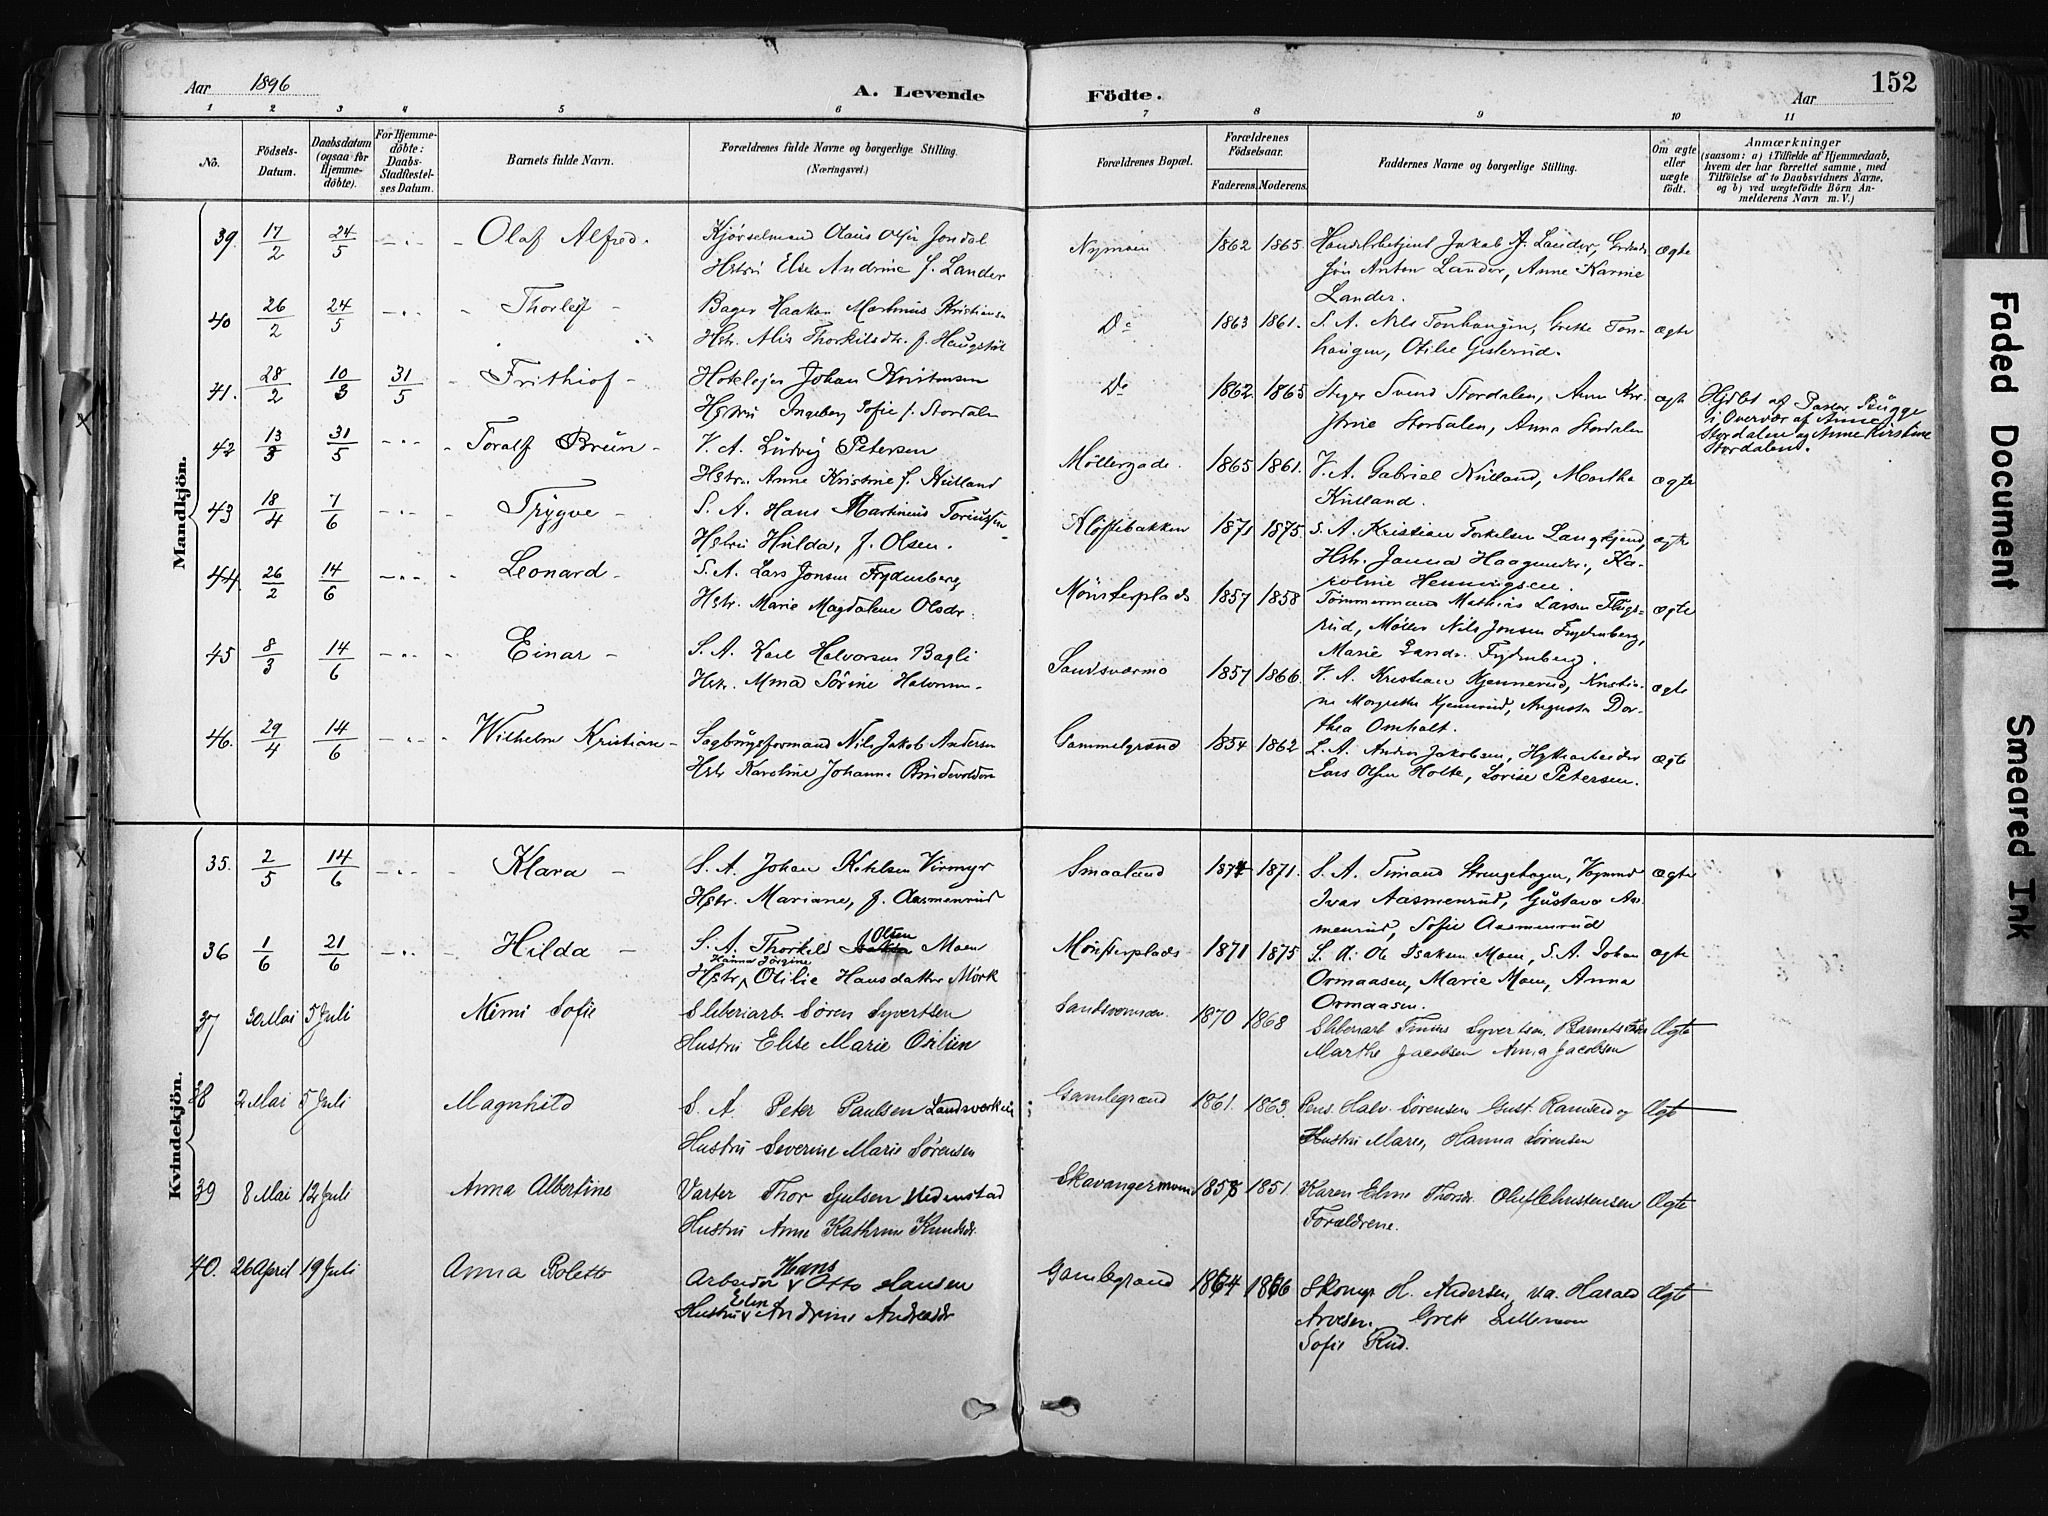 Aar 1896
A. Levende Födte.
Aar
152
1 2 3 4 5 6 7 8 9 10 11
No.
Födsels-Datum.
Daabsdatum (ogsaa for Hjemmedöbte).
For Hjemmedöbte: Daabs-Stadfæstelses Datum.
Barnets fulde Navn.
Forældrenes fulde Navne og borgerlige Stilling.
(Næringsvei.)
Forældrenes Bopæl.
Forældrenes Födselsaar.
Faderens. Moderens.
Faddernes Navne og borgerlige Stilling.
Om ægte eller uægte födt.
Anmærkninger
(saasom: a) i Tilfælde af Hjemmedaab, hvem der har forrettet samme, med Tilföielse af to Daabsvidners Navne, og b) ved uægtefödte Börn Anmelderens Navn m. V.)
Mandkjön.
39. 17/2 24/5 Olaf Alfred. Kjørselmand Olaus Olsen Jondal
Hstru Else Andrine f. Lander
Nymoen 1862 1865. Handelsbetjent Jakob A. Lander,
Jön Anton Lander, Anne Karine
Lander.
ægte
40 26/2 24/5 Thorleif Bager Haakon Martinius Kristians
Hstr. Alis Thorkilsdtr. f. Haugstöl
Do 1863 1861. S. A. Nils Tonhaugen, Grethe Tonhaugen, Otilie Gisterud.
ægte
41. 28/2 10/3 31/5 Frithiof Hoteleier Johan Kristensen
Hstru Ingeborg Sofie f. Stordalen
Do 1862 1865 Steger Svend Stordalen, Anne
Stordalen, Anna Stordalen
ægte
Hjdbt af Pastor Bugge
i Overvær af Anne
Stordalen og Anne Kirstine
Stordalen.
42 13/3 31/5 Toralf Brün V. A. Ludvig Petersen
Hstr. Anne Kristine f. Kulland
Möllergade. 1865 1861. V. A. Gabriel Kulland, Marthe
Kulland.
ægte
43 18/4 7/6 Trygve S. A. Hans Martinius Toriussen
Hstru Hulda, f. Olsen.
Kløftebakken 1871 1875. S. A. Kristian Torkelsen Langkjend,
Hstr. Janna Haagensen, Karoline Henningsen.
ægte
44. 26/2 14/6 Leonard S. A. Lars Jonsen Frydenberg
Hstr. Marie Magdalene Olsdr.
Mønsterplads 1857 1858 Tømmermand Mathias Larsen Flugsrud, Møller Nils Jonsen Frydenberg,
Marie Frydenberg.
ægte
45 8/3 14/6 Einar S. A. Karl Halvorsen Bagli
Hstr. Mina Sørine Halvorsen
Sandsværmo 1857 1866. V. A. Kristian Kjennerud, Kristine Margrethe Kjennerud, Augusta Dorthea Omholt.
ægte
46. 29/4 14/6 Wilhelm Kristian Sagbrugsformand Nils Jakob Andersen
Hstr Karoline Johanne Bindevolden
Gammelgrund 1854 1862 S. A. Anders Jakobsen, Hyttearbeider
Lars Olsen Holte, Lovise Petersen.
ægte
Kvindekjön.
35. 2/5 14/6 Klara S. A. Johan Ketelsen Virmyr
Hstr. Mariane, f. Aasmenrud
Smaaland 1874 1871. S. A. Timand Strengehagen,
Ivar Aasmenrud, Gustava Aasmenrud, Sofie Aasmenrud
ægte
36 1/6 21/6 Hilda S. A. Thorkild Olsen Moen
Hstr. Hanna Jörgine Otilie Hansdatter Mörk
Mønsterplads 1871 1875 S. A. Ole Isaksen Moen, S. A. Johan
Ormaasen, Marie Moen, Anna
Ormaasen.
ægte
37 30 Mai 5 Juli Mimi Sofie Sliberiarb Søren Syvertsen
Hustru Elise Marie Osilien
1870 1868 Sliberiarb Tinius Syvertsen,
Marthe Jacobsen Anna Jacobsen
Ægte
38 2 Mai 5 Juli Magnhild S. A. Peter Paulsen Landsverkeie
Hustru Severine Marie Sørensen
Gamlegrænd 1861. 1863. Pens. Halv. Sørensen Gust. Ramsrud og
Hustru Maren, Hanna Sørensen
Ægte
39 8 Mai 12 Juli Anna Albertine Vægter Thor Gulsen Hedenstad
Hustru Anne Kathrine Knudsdr.
Skavangermoen 1858 1851. Karen Eline Thorsdr. Oluf Christensen
Forældrene.
Ægte
40. 26 April 19 Juli Anna Bolette Arbeider Hans Otto Hansen
Hustru Elen Andrine Andreasdr
Gamlegrænd 1864 1866 Skomgr H. Andersen, v.a. Harald
Arvesen. Grete Sellemoen
Sofie Rud.
Ægte
Faded Document
Smeared Ink